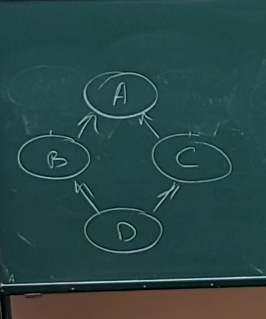 A
B C
D